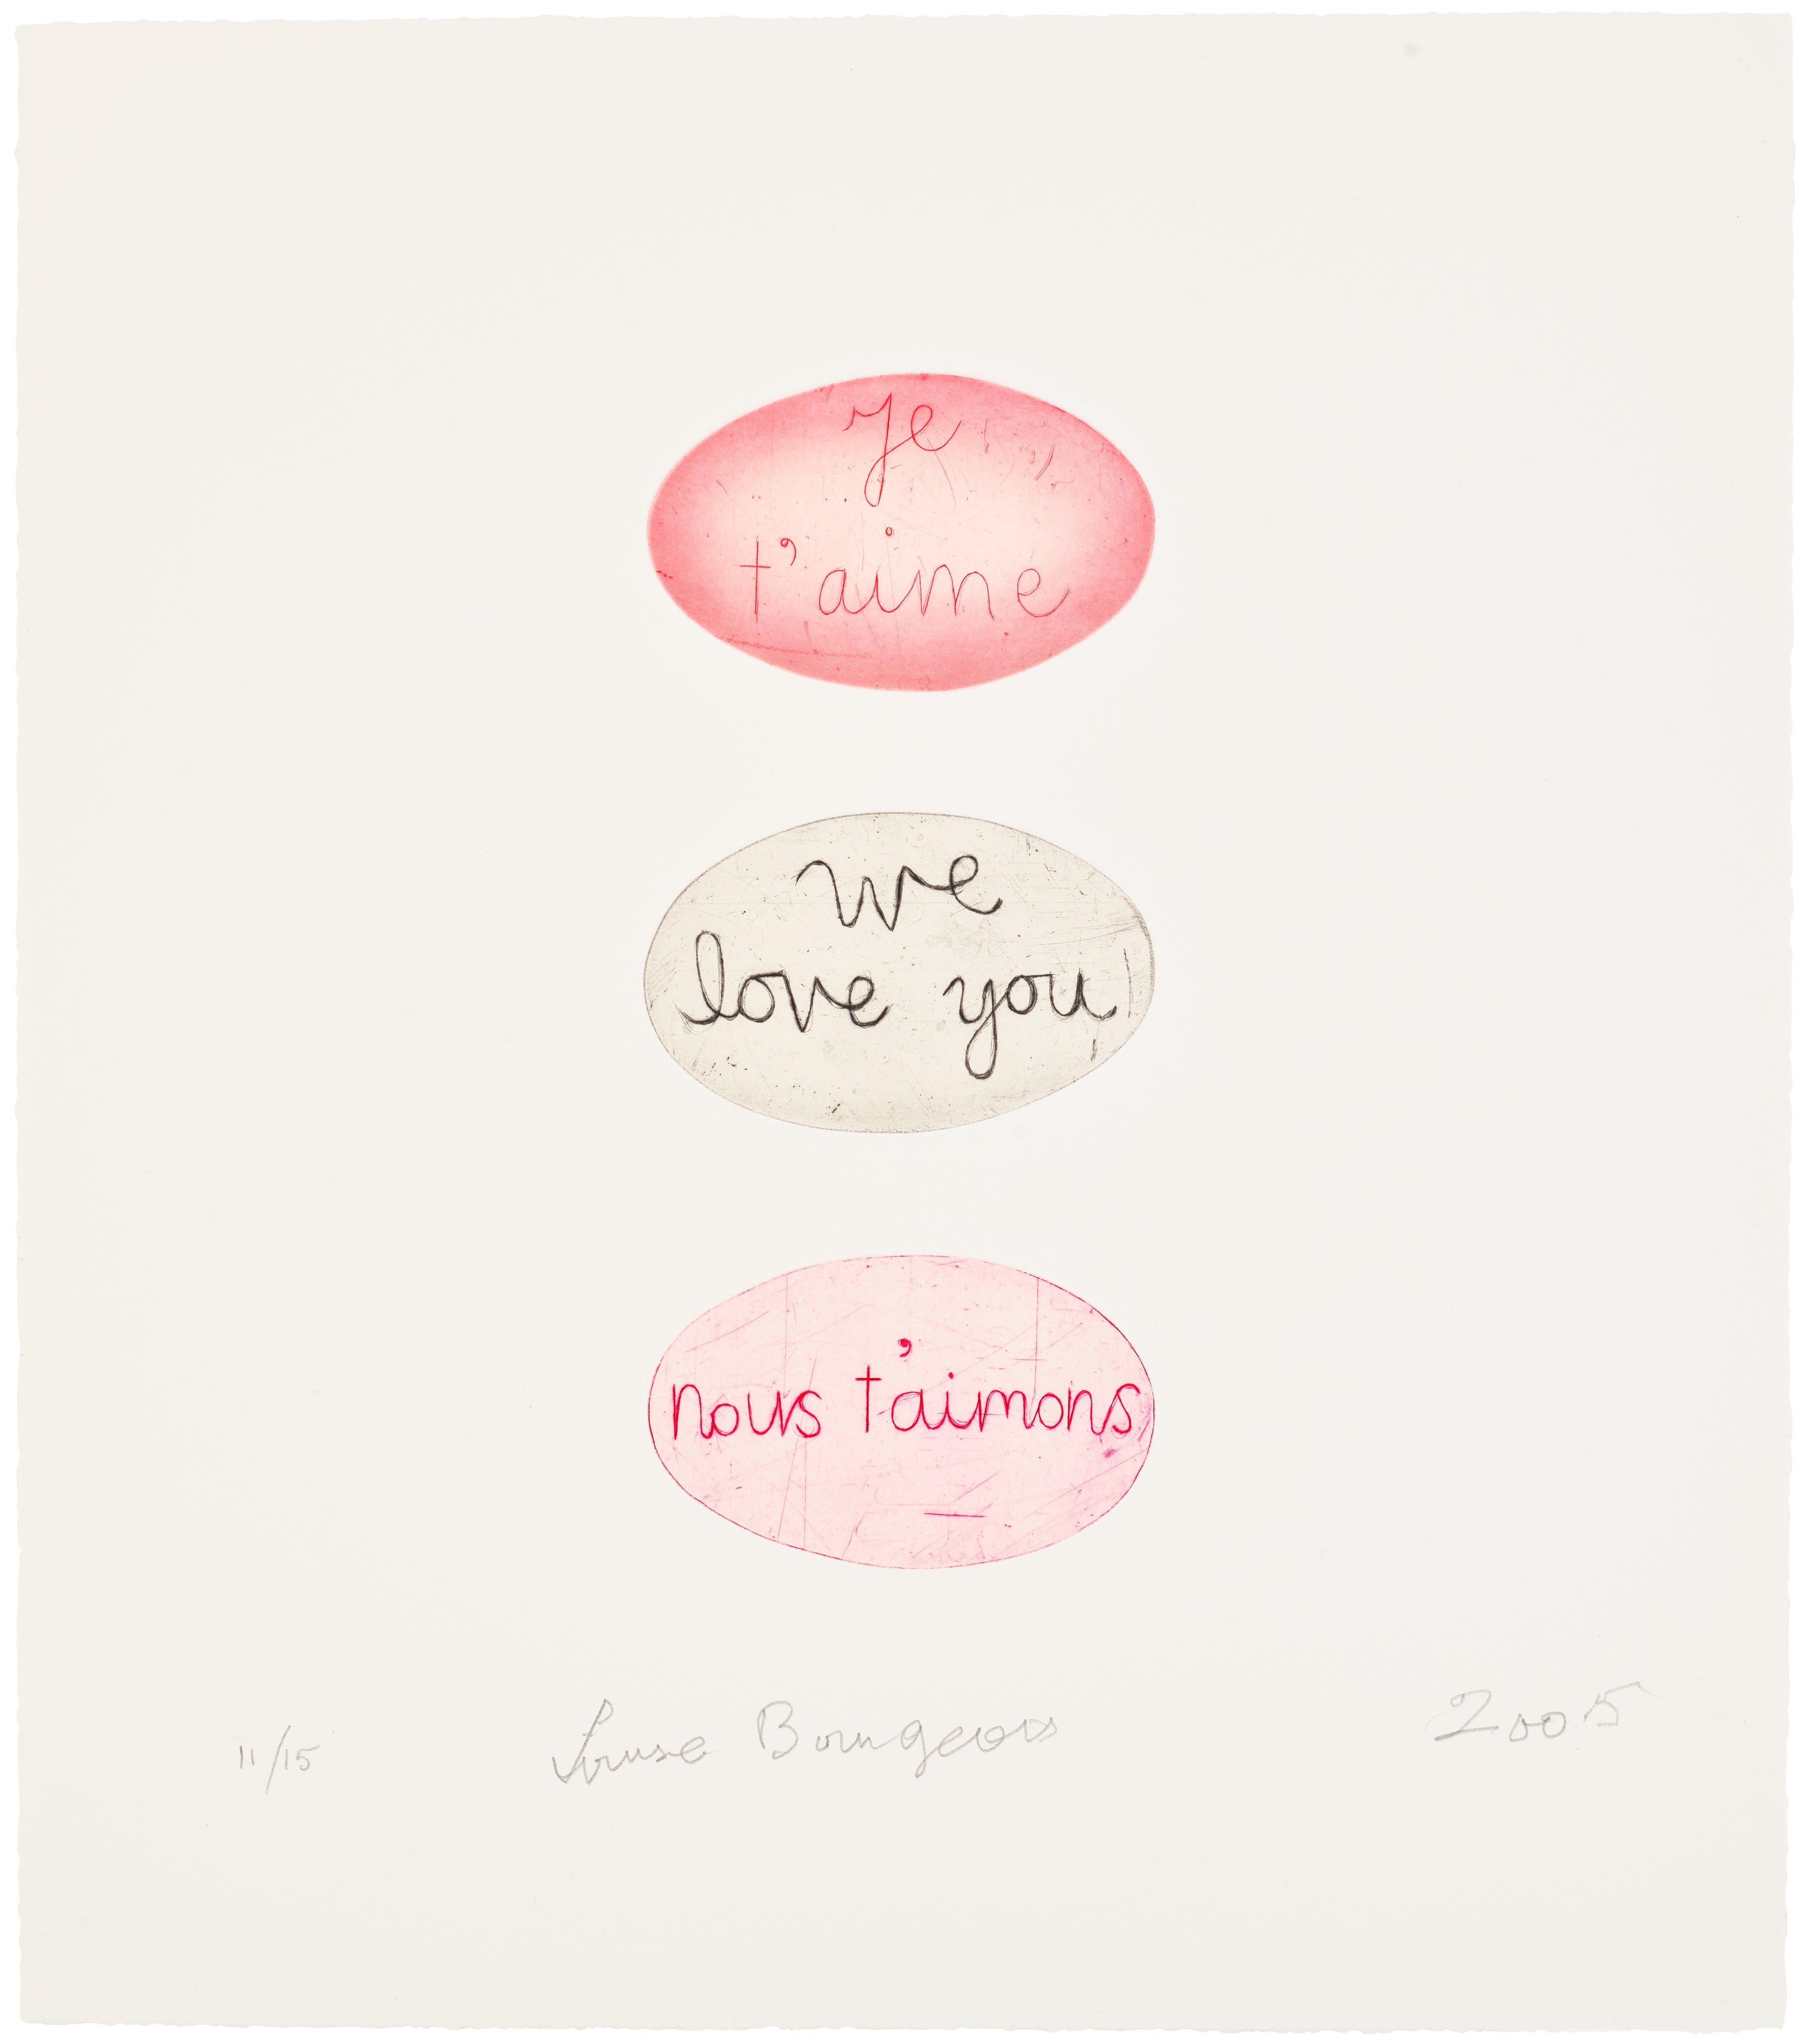 je
t'aime
we
love you
nous t'aimons
11/15 Louise Bourgeois 2005